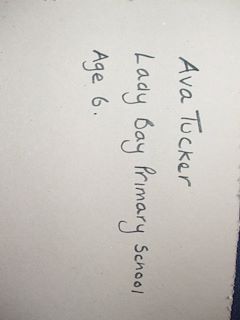 Ava Tucker
Lady Bay Primary School
Age 6.